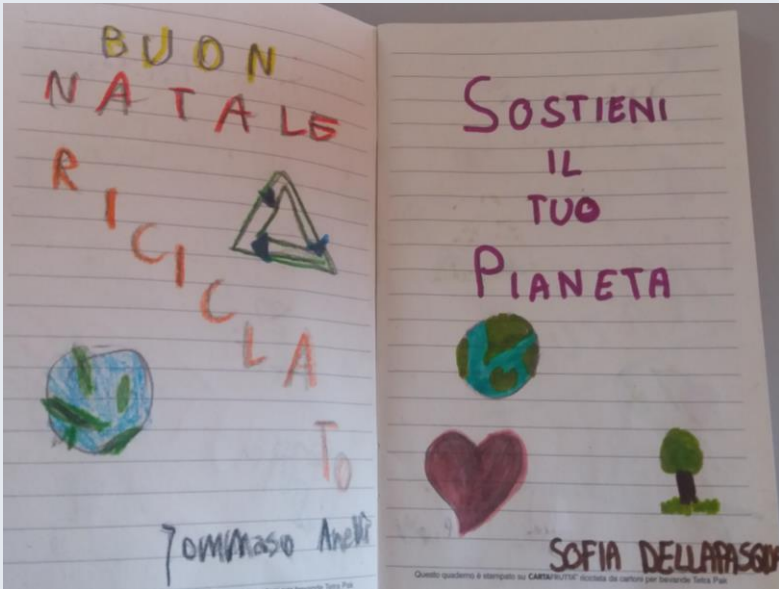 BUON
NATALE
RICICLATO
Tommaso Anelli
SOSTIENI
IL
TUO
PIANETA
SOFIA DELLAPASQUA
Questo quaderno è stampato su CARTAFRUTTA® riciclata da cartoni per bevande Tetra Pak
bevande Tetra Pak